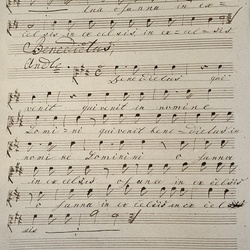 tua osanna in ex=
celsis in excelsis in ex=cel=sis
Benedictus,
Andte
Benedictus qui
venit qui venit in nomine
Domini qui venit bene=dictus in
nomine Domini ne o sanna
in excelsis osanna in excelsis
o sanna in excelsis in excel
sis